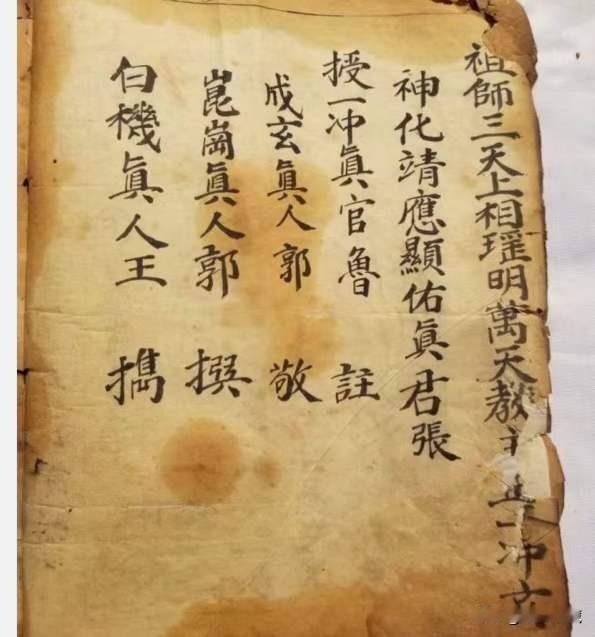 祖師三天上相瑶明萬天教主正一冲玄
神化靖應顯佑眞君張
授一冲眞官魯 註
成玄眞人郭 敬
崑崗眞人郭 撰
白機眞人王 擕